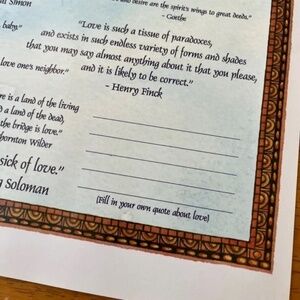 Simon
and desire are the spirit's wings to great deeds."
- Goethe
baby."
"Love is such a tissue of paradoxes,
and exists in such endless variety of forms and shades
that you may say almost anything about it that you please,
and it is likely to be correct."
- Henry Finck
love one's neighbor."
re is a land of the living
d a land of the dead,
the bridge is love."
hornton Wilder
sick of love."
g Soloman
(Fill in your own quote about love)